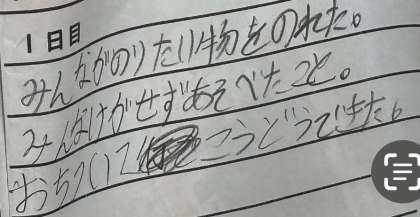 1日目
みんながのりたい物をのれた。
みんなけがせずあそべたこと。
おちついてこうどうできた。